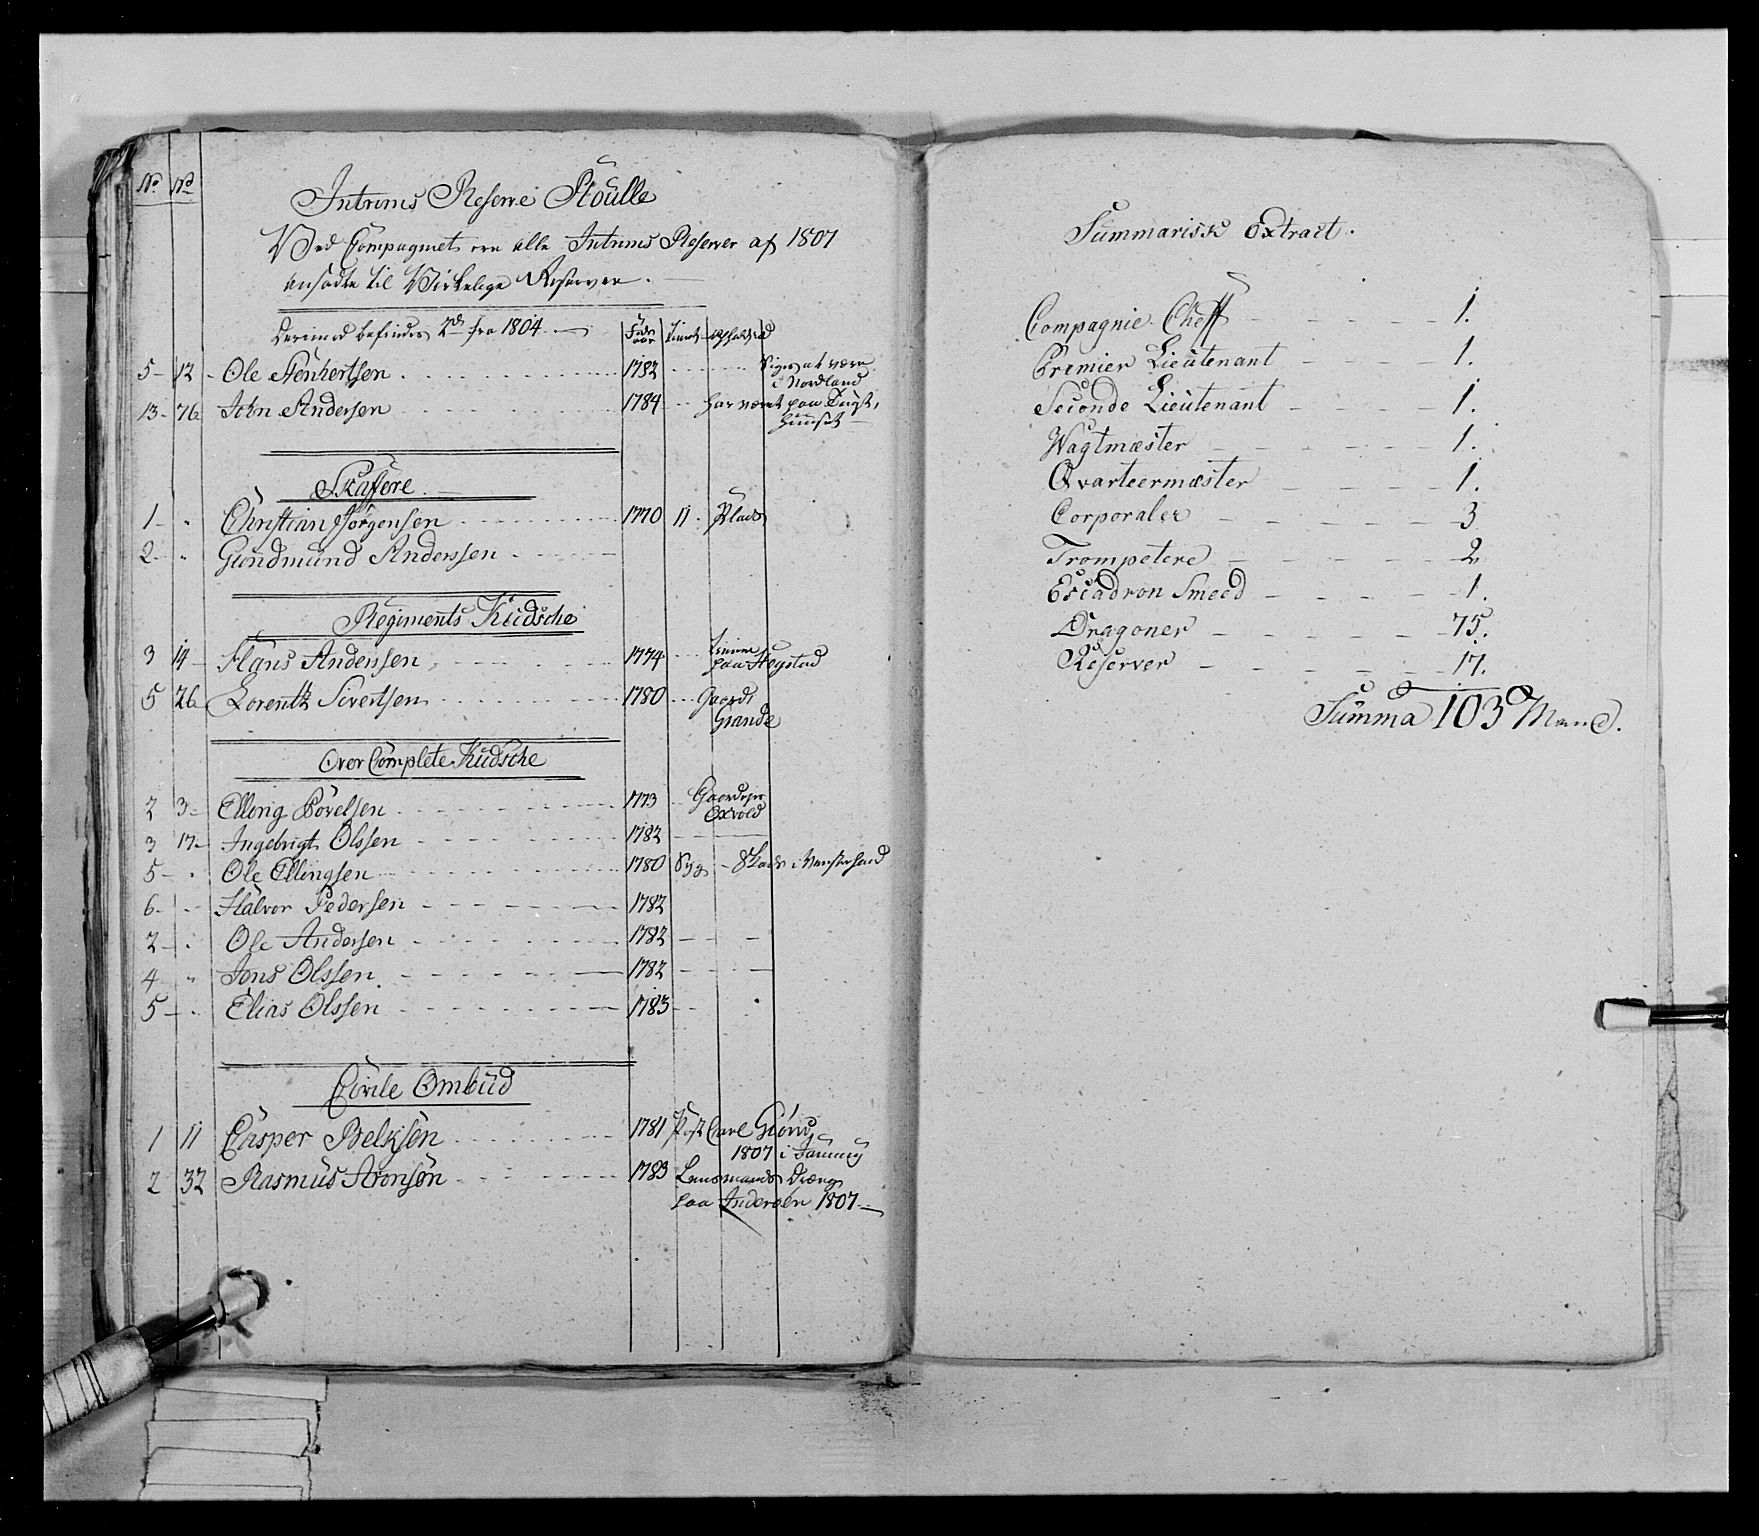 No. No.
Intrims Reserve Roulle
Ved Compagniet ere alle Intrims Reserver af 1807
ansadte til Virkelige Reserver.
Derimod befindes 2de fra 1804
Føde aar
5 12 Ole 1782 Siges at være
i Nordland
13 76 John Andersen 1784 har været paa
Skaffere.
1 Christian Jørgensen 1770 11 Plads
2 Gundmund Anderssen
Regiments Kudsche
3 14 Hans Anderssen 1774 tiener
paa Hegstad
5 26 Lorentz Sivertsen 1780 Gaards
Grande
Over Complete Kudsche
2 3 Elling Povelsen 1773
3 17 Ingebrigt Olssen 1782
5 Ole Ellingsen 1780 Syg
6 Halvor Pedersen 1782
2 Ole Andersen 1782
4 Jens Olssen 1782
5 Elias Olssen 1783
Civile Ombud
1 11 Casper 1781 Post Carl
1807 i
2 32 Rasmus Aronsøn 1783 Lensmands Dreng
paa Inderøen 1807
Summarisk Extract.
Compagnie Cheff 1.
Premier Lieutenant 1.
Seconde Lieutenant 1.
Wagtmæster 1.
Qvarteermæster 1.
Corporaler 3
Trompetere 2
Escadron Smeed 1.
Dragoner 75.
Reserver 17.
Summa 103 Mand.